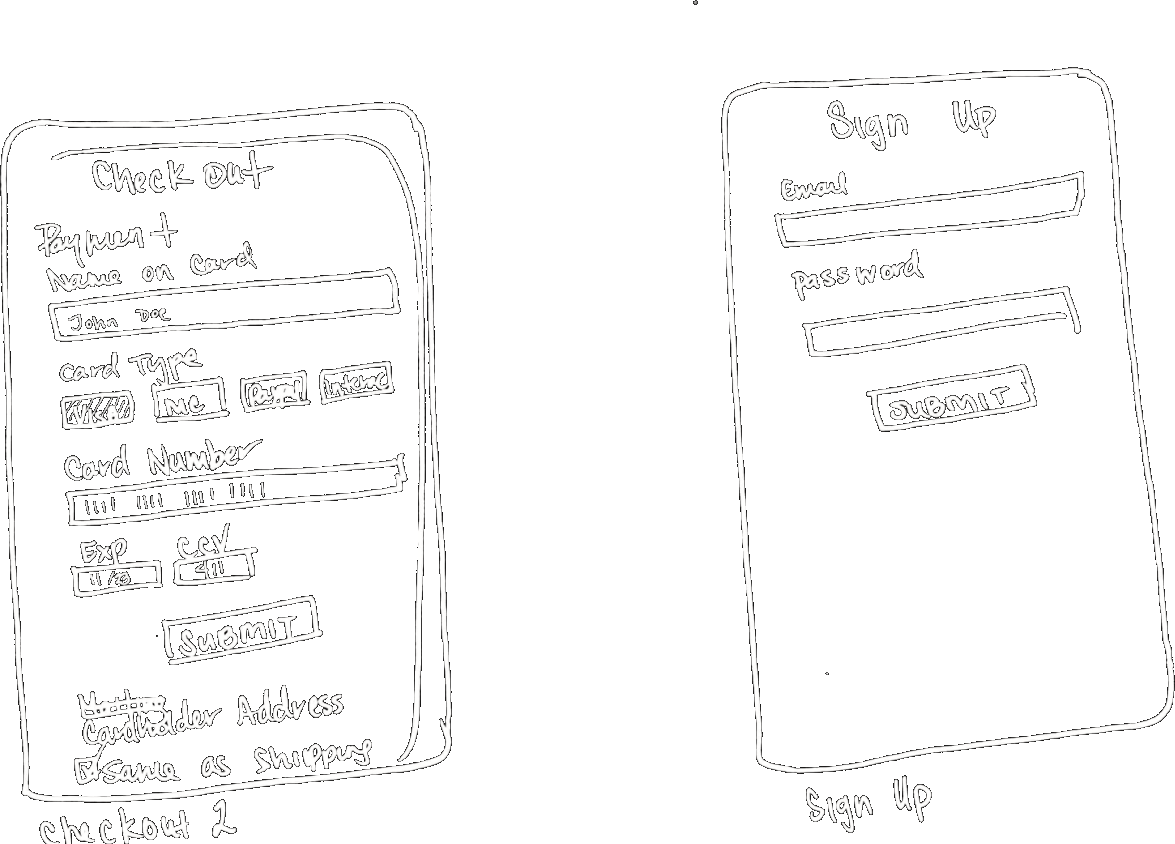 Check Out
Payment
Name on Card
John Doe
Card Type
VISA MC Paypal Interac
Card Number
1111 1111 1111 1111
Exp CCV
SUBMIT
Cardholder Address
Same as Shipping
Checkout 2
Sign Up
Email
Password
SUBMIT
Sign Up